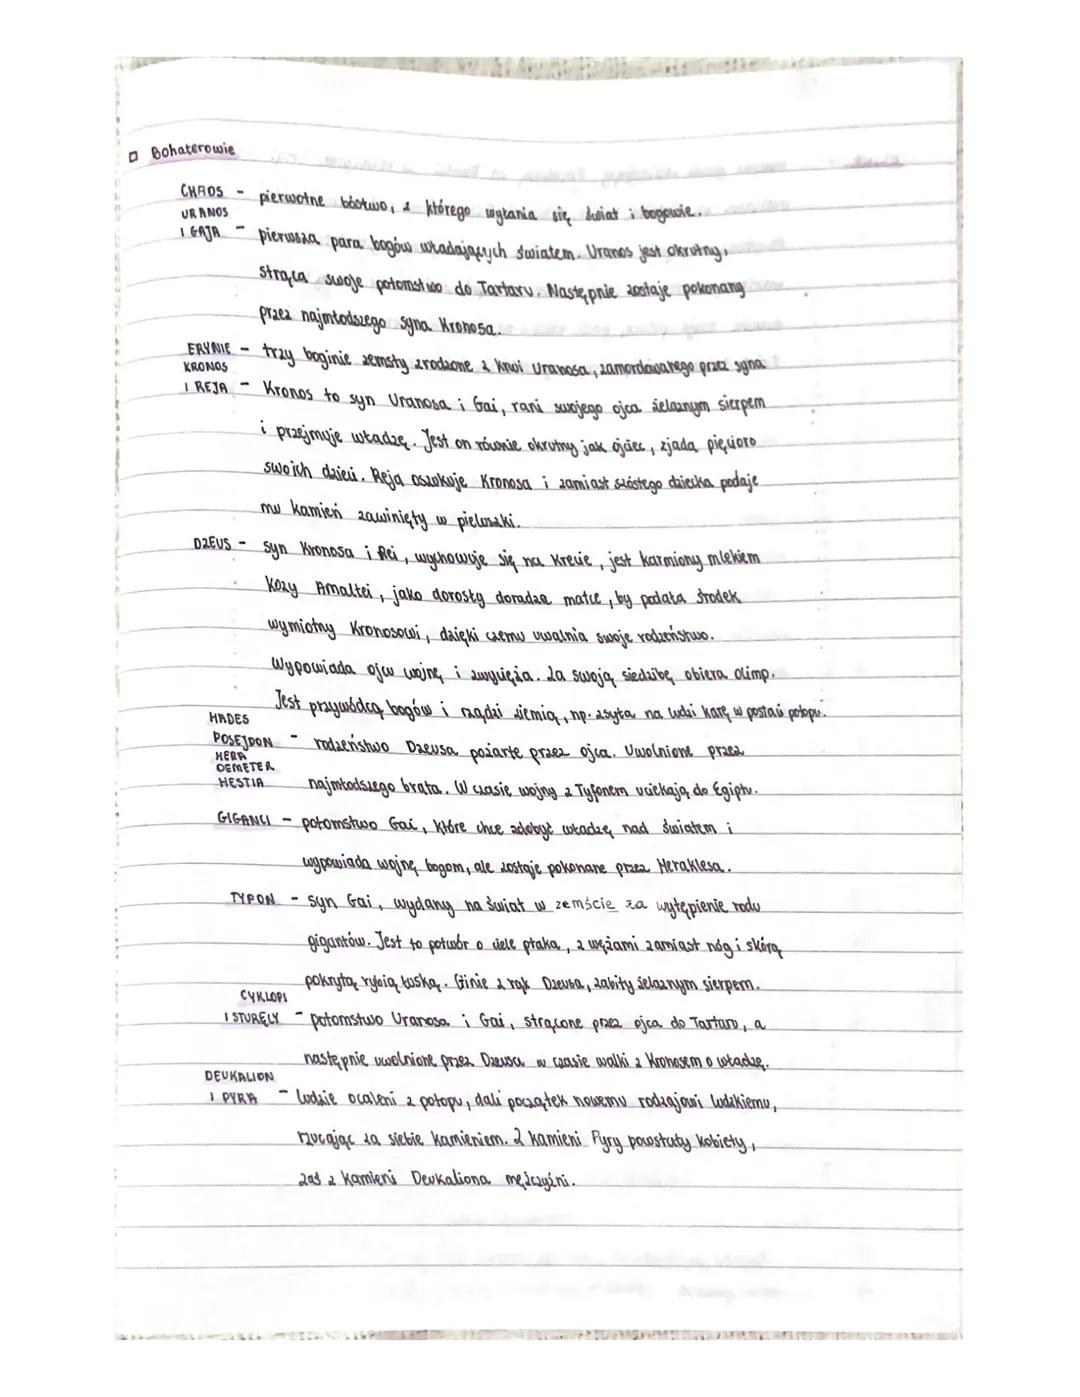 Bohaterowie
CHAOS - pierwotne bóstwo, z którego wyłania się świat i bogowie.
URANOS
I GAJA - pierwsza para bogów władających światem. Uranos jest okrutny,
strąca swoje potomstwo do Tartaru. Następnie zostaje pokonany
przez najmłodszego syna Kronosa.
ERYNIE - trzy boginie zemsty zrodzone z krwi Uranosa, zamordowanego przez syna.
KRONOS
I REJA - Kronos to syn Uranosa i Gai, rani swojego ojca żelaznym sierpem
i przejmuje władzę. Jest on równie okrutny jak ojciec, zjada pięcioro
swoich dzieci. Reja oszukuje Kronosa i zamiast szóstego dziecka podaje
mu kamień zawinięty w pieluszki.
DZEUS - syn Kronosa i Rei, wychowuje się na Krecie, jest karmiony mlekiem
kozy Amaltei, jako dorosły doradza matce, by podała środek
wymiotny Kronosowi, dzięki czemu uwalnia swoje rodzeństwo.
Wypowiada ojcu wojnę i zwycięża. Za swoją siedzibę obiera Olimp.
Jest przywódcą bogów i rządzi ziemią, np. zsyła na ludzi karę w postaci potopu.
HADES
POSEJDON - rodzeństwo Dzeusa pożarte przez ojca. Uwolnione przez
HERA
DEMETER
HESTIA najmłodszego brata. W czasie wojny z Tyfonem uciekają do Egiptu.
GIGANCI - potomstwo Gai, które chce zdobyć władzę nad światem i
wypowiada wojnę bogom, ale zostaje pokonane przez Heraklesa.
TYFON - syn Gai, wydany na świat w zemście za wytępienie rodu
gigantów. Jest to potwór o ciele ptaka, z wężami zamiast nóg i skórą
pokrytą rybią łuską. Ginie z rąk Dzeusa, zabity żelaznym sierpem.
CYKLOPI
I STURĘCY - potomstwo Uranosa i Gai, strącone przez ojca do Tartaru, a
następnie uwolnione przez Dzeusa w czasie walki z Kronosem o władzę.
DEUKALION
I PYRA - ludzie ocaleni z potopu, dali początek nowemu rodzajowi ludzkiemu,
rzucając za siebie kamieniem. Z kamieni Pyry powstały kobiety,
zaś z kamieni Deukaliona mężczyźni.